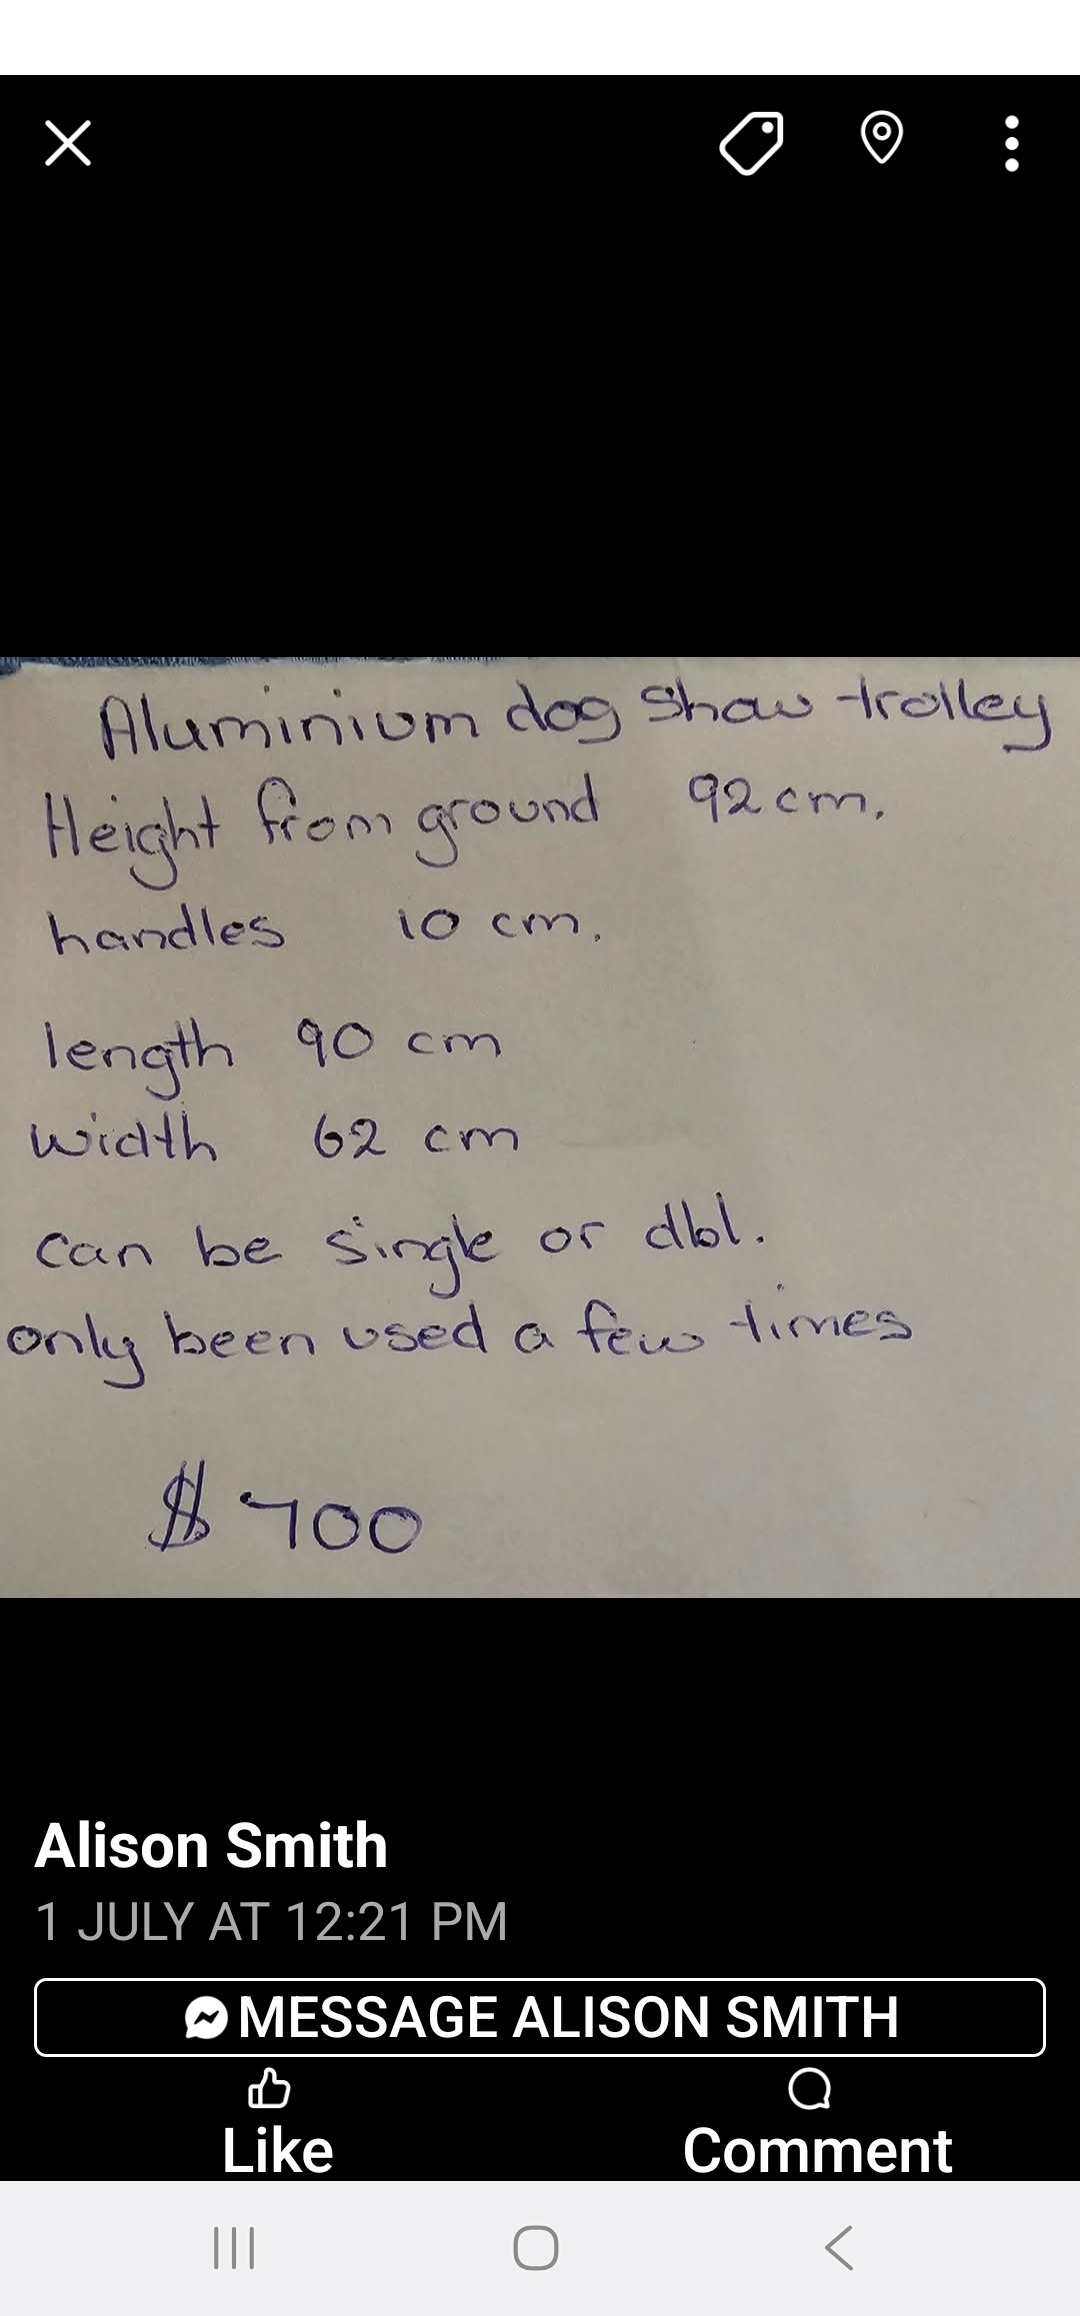 Aluminium dog show trolley
Height from ground 92cm.
handles 10 cm.
length 90 cm
width 62 cm
can be single or dbl.
only been used a few times
$700
Alison Smith
1 JULY AT 12:21 PM
MESSAGE ALISON SMITH
Like Comment